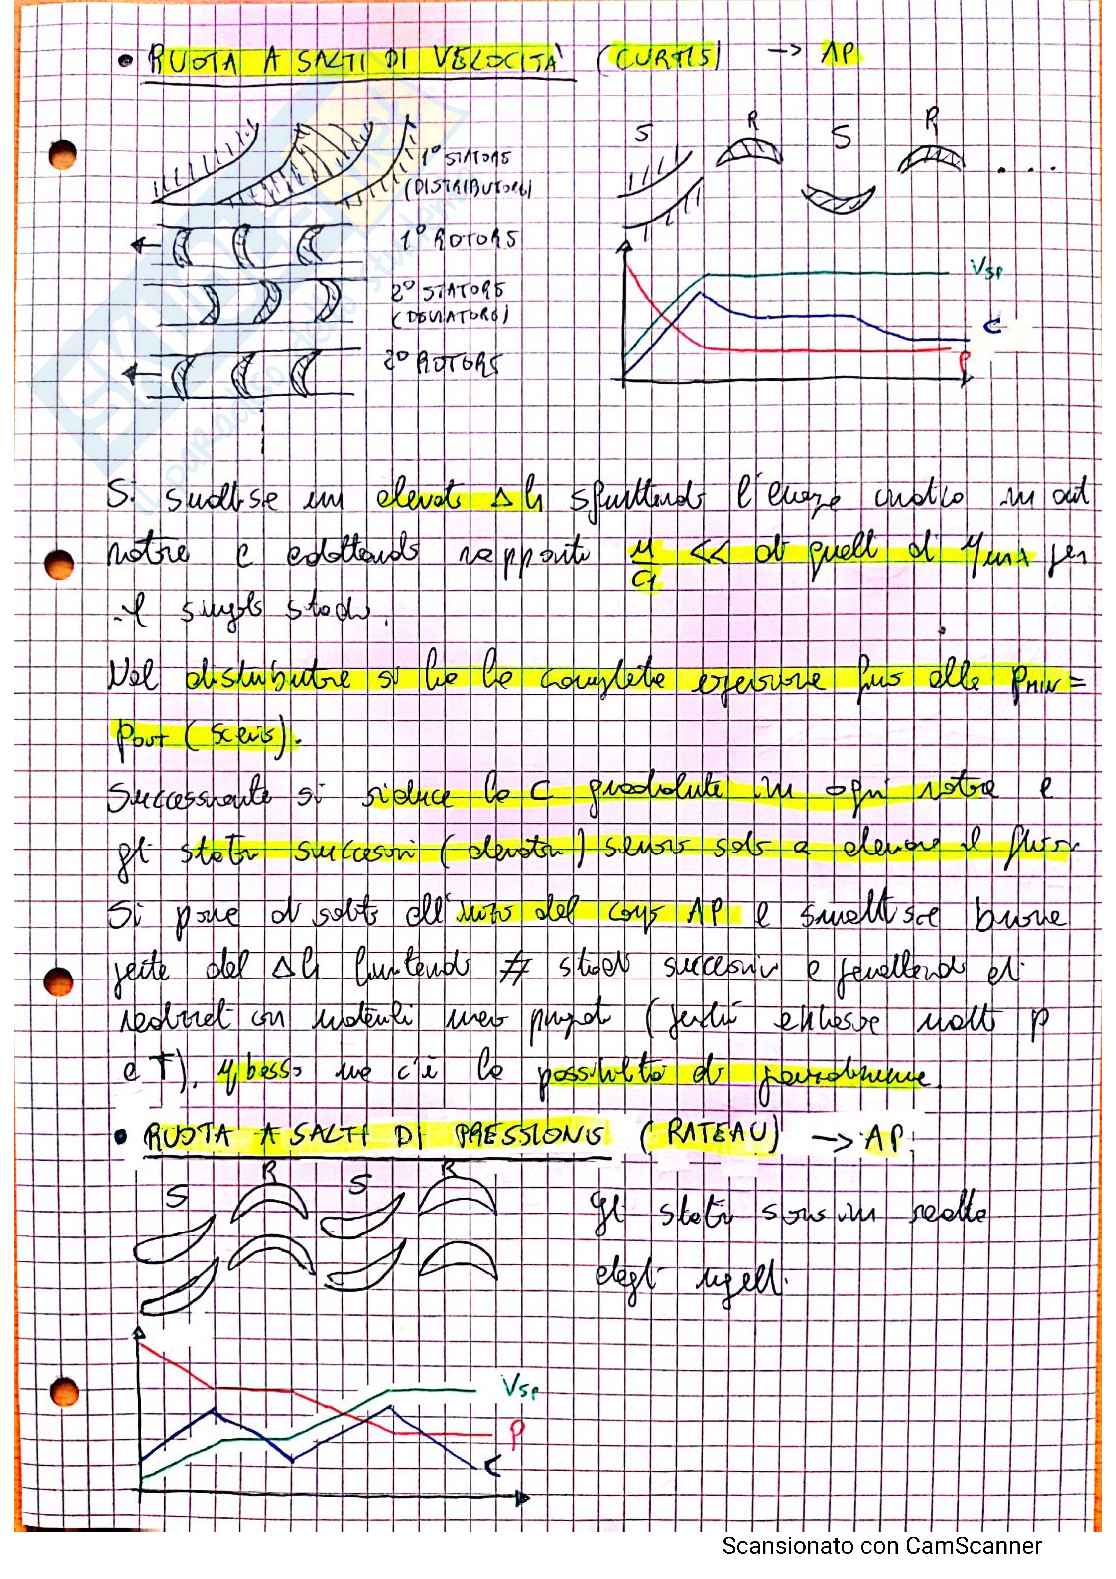 • RUOTA A SALTI DI VELOCITÀ (CURTIS) → AP
S R S R ....
1° STATORE
(DISTRIBUTORE)
1° ROTORE
2° STATORE
(DEVIATORE)
2° ROTORE
Vsp
C
P
Si smaltisce un elevato Δh sfruttando l'energia cinetica in out
rotore e adottando rapporti u/c1 << di quelli di ηmax per
il singolo stadio.
Nel distributore si ha la completa espansione fino alla PMIN =
POUT (scarico).
Successivamente si riduce la C gradualmente in ogni rotore e
gli statori successivi (deviatori) servono solo a deviare il flusso
Si pone di solito all'inizio del corpo AP e smaltisce buona
parte del Δh limitando # stadi successivi e permettendo di
realizzarli con materiali meno pregiati (perché altrimenti molto P
e T). η basso ma c'è la possibilità di parzializzazione.
• RUOTA A SALTI DI PRESSIONE (RATEAU) → AP
S R S R
Gli statori sono in realtà
degli ugelli.
Vsp
P
C
Scansionato con CamScanner